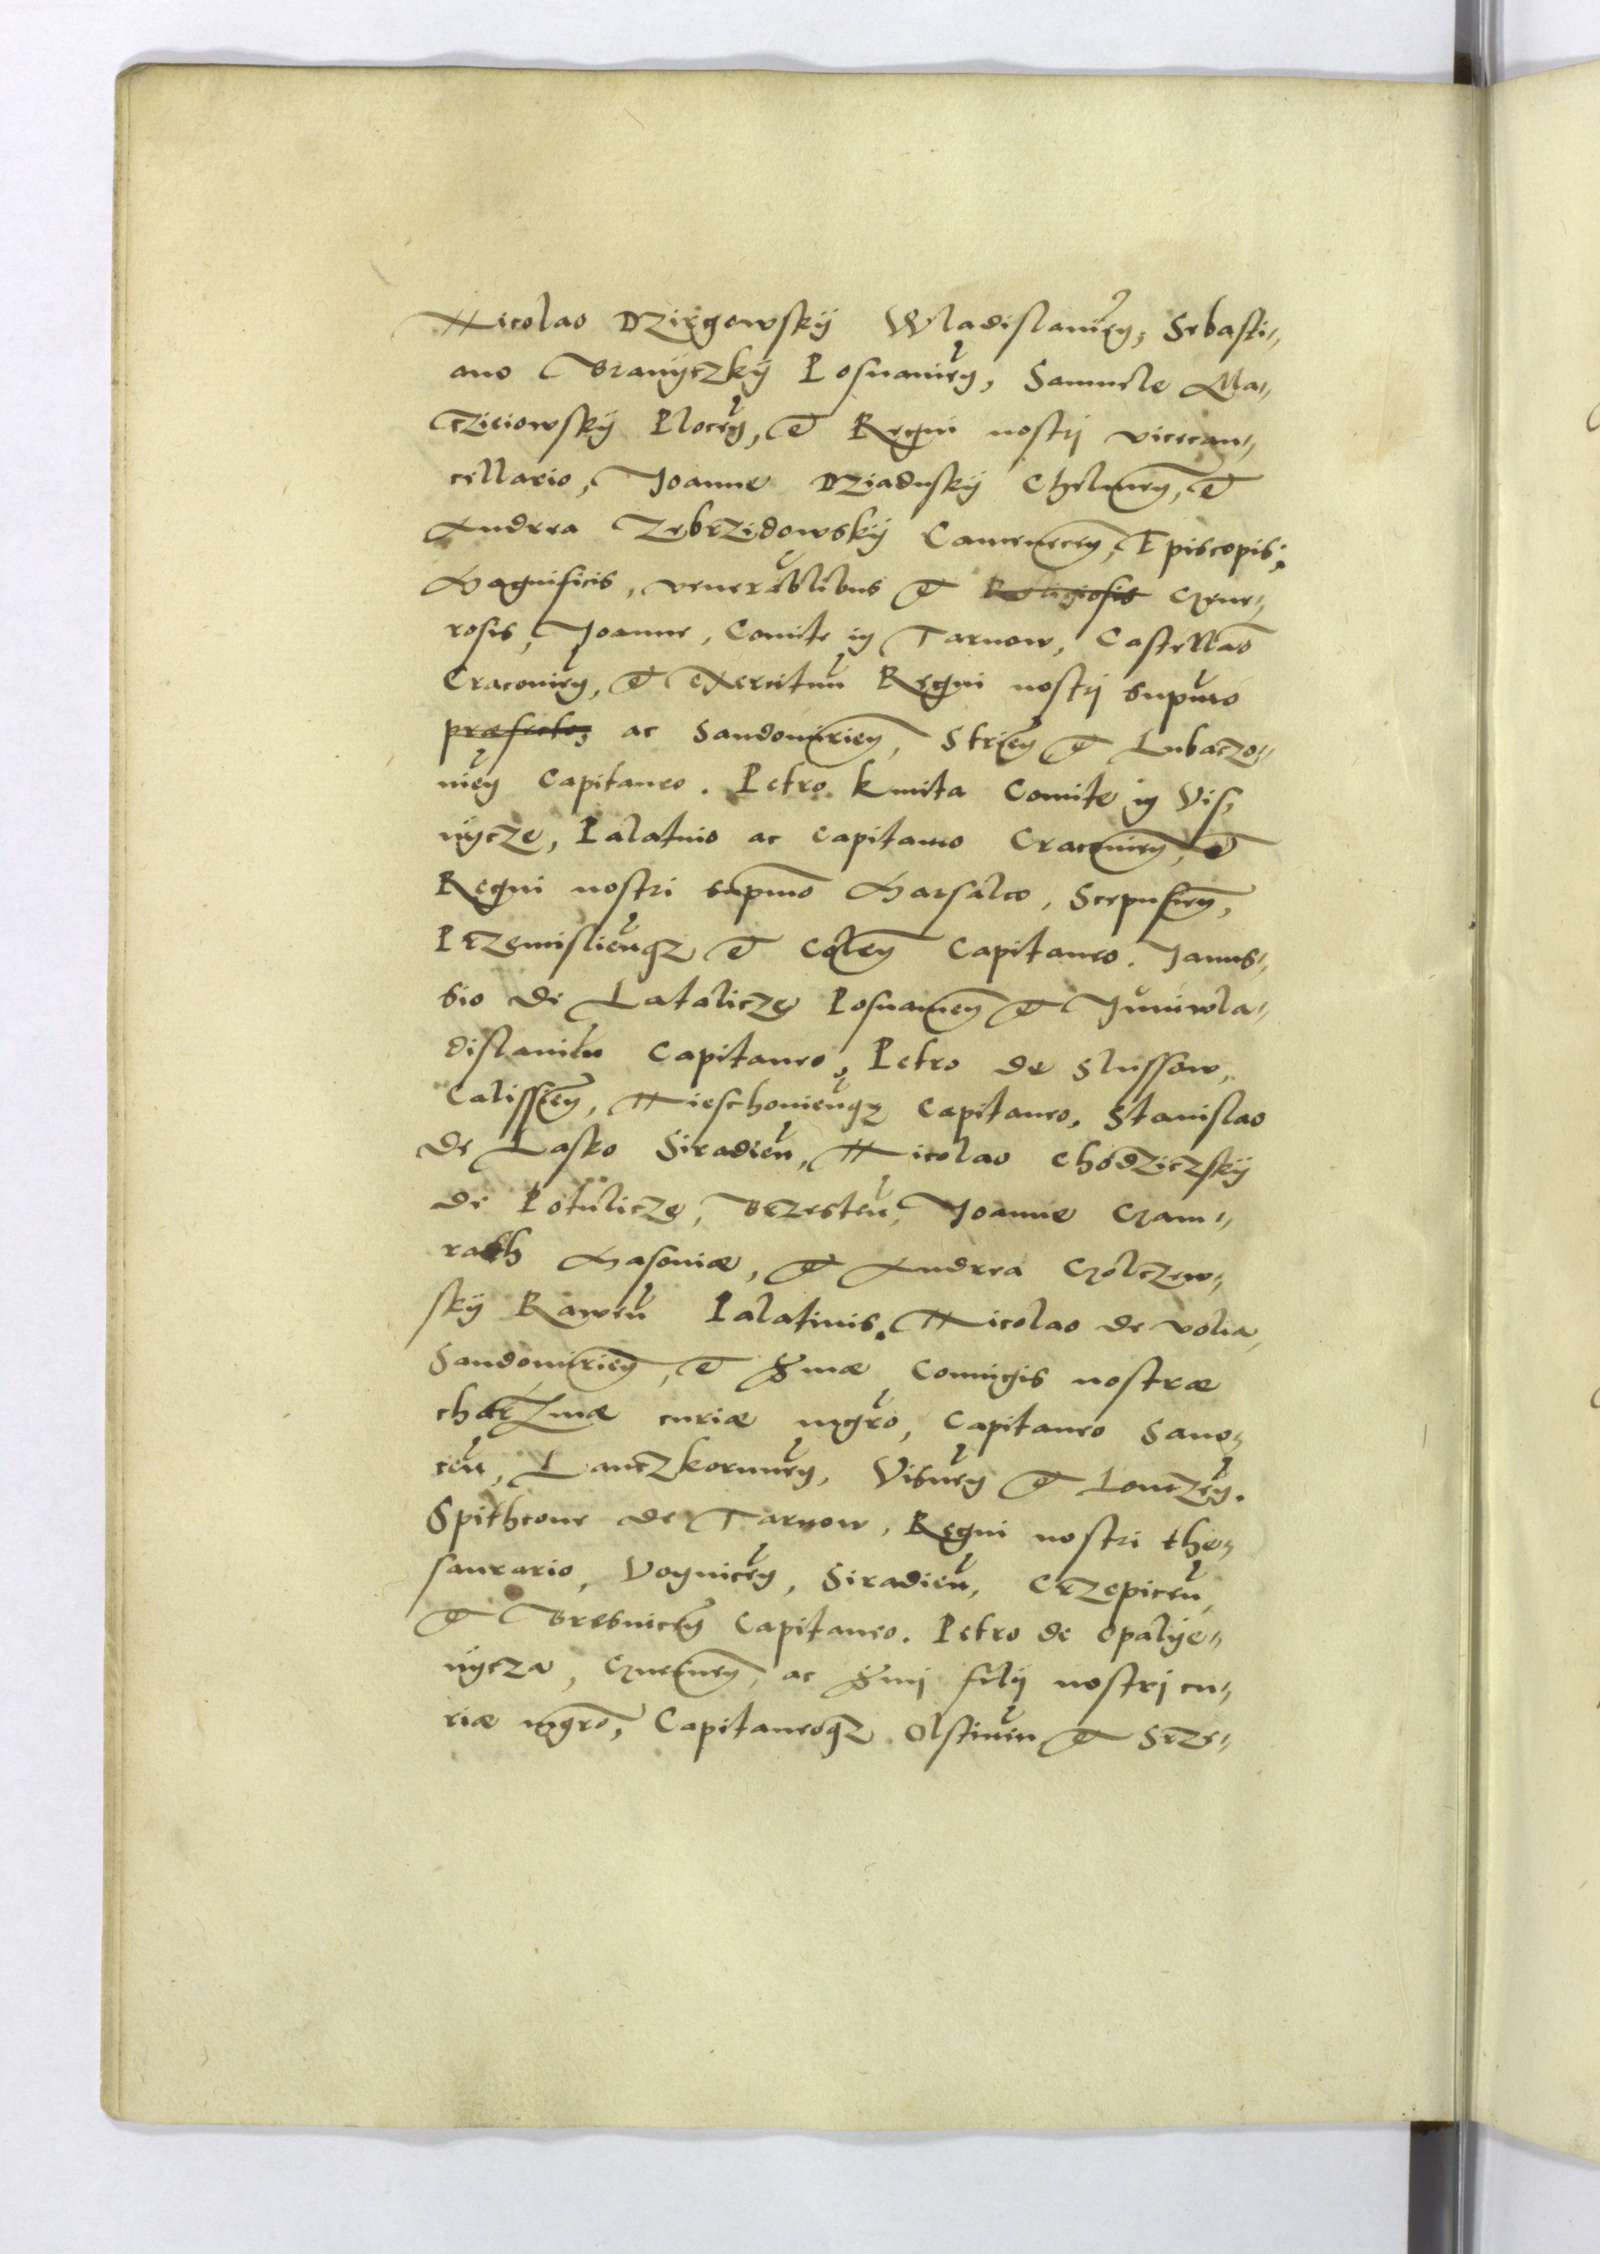 Nicolao Dzirgowskÿ Wladislavień, Sebasti„
ano Branÿczkÿ Posnanień, Samuele Ma„
czieiowskÿ Plocen̄, et Regni nostrj vicecan„
cellario, Joanne Dziaduskÿ Chelmen̄, et
Andrea Zebrzidowskÿ Camenecen̄, Episcopis;
Magnificis, venerablibus et Religiosis Gene„
rosis, Joanne, Comite in Tarnow, Castellāo
Cracovien̄, et exercituū Regni nostrj supmo
præfecto, ac Sandomirien̄, Strien̄ et Lubaczo„
vien̄ Capitaneo. Petro Kmita Comite in Vis„
nÿcze, Palatino ac Capitaneo Cracovien̄, et
Regni nostri supmo Marsalco, Scepusien̄,
Przemislien̄qz et Colen̄ Capitaneo. Janus„
sio de Latalicze Posnanien̄ et Juniwla„
dislavien̄ Capitaneo, Petro de Slussow,
Calissien̄, Mieschonien̄qz Capitaneo, Stanislao
de Lasko Siradien̄, Nicolao Chodziczskÿ
de Potulicze, Brzesten̄, Joanne Gam„
rath Masoviæ, et Andrea Golczew„
skÿ Rawen̄ Palatinis. Nicolao de Volia,
Sandomirien̄, et Smæ Coniugis nostræ
charzmæ curiæ mgro, Capitaneo Sano„
cen̄, Lanczkorunen̄, Visnen̄ et Lomzen̄.
Spitheone de Tarnow, Regni nostri the„
saurario, Voynicen̄, Siradien̄, Crzepicen̄,
et Bresnicen̄ Capitaneo. Petro de Opalye„
nÿcza, Gnesnen̄, ac Smj filÿ nostrj cu„
riæ mgro, Capitaneoqz Olstinen̄ et Srze„